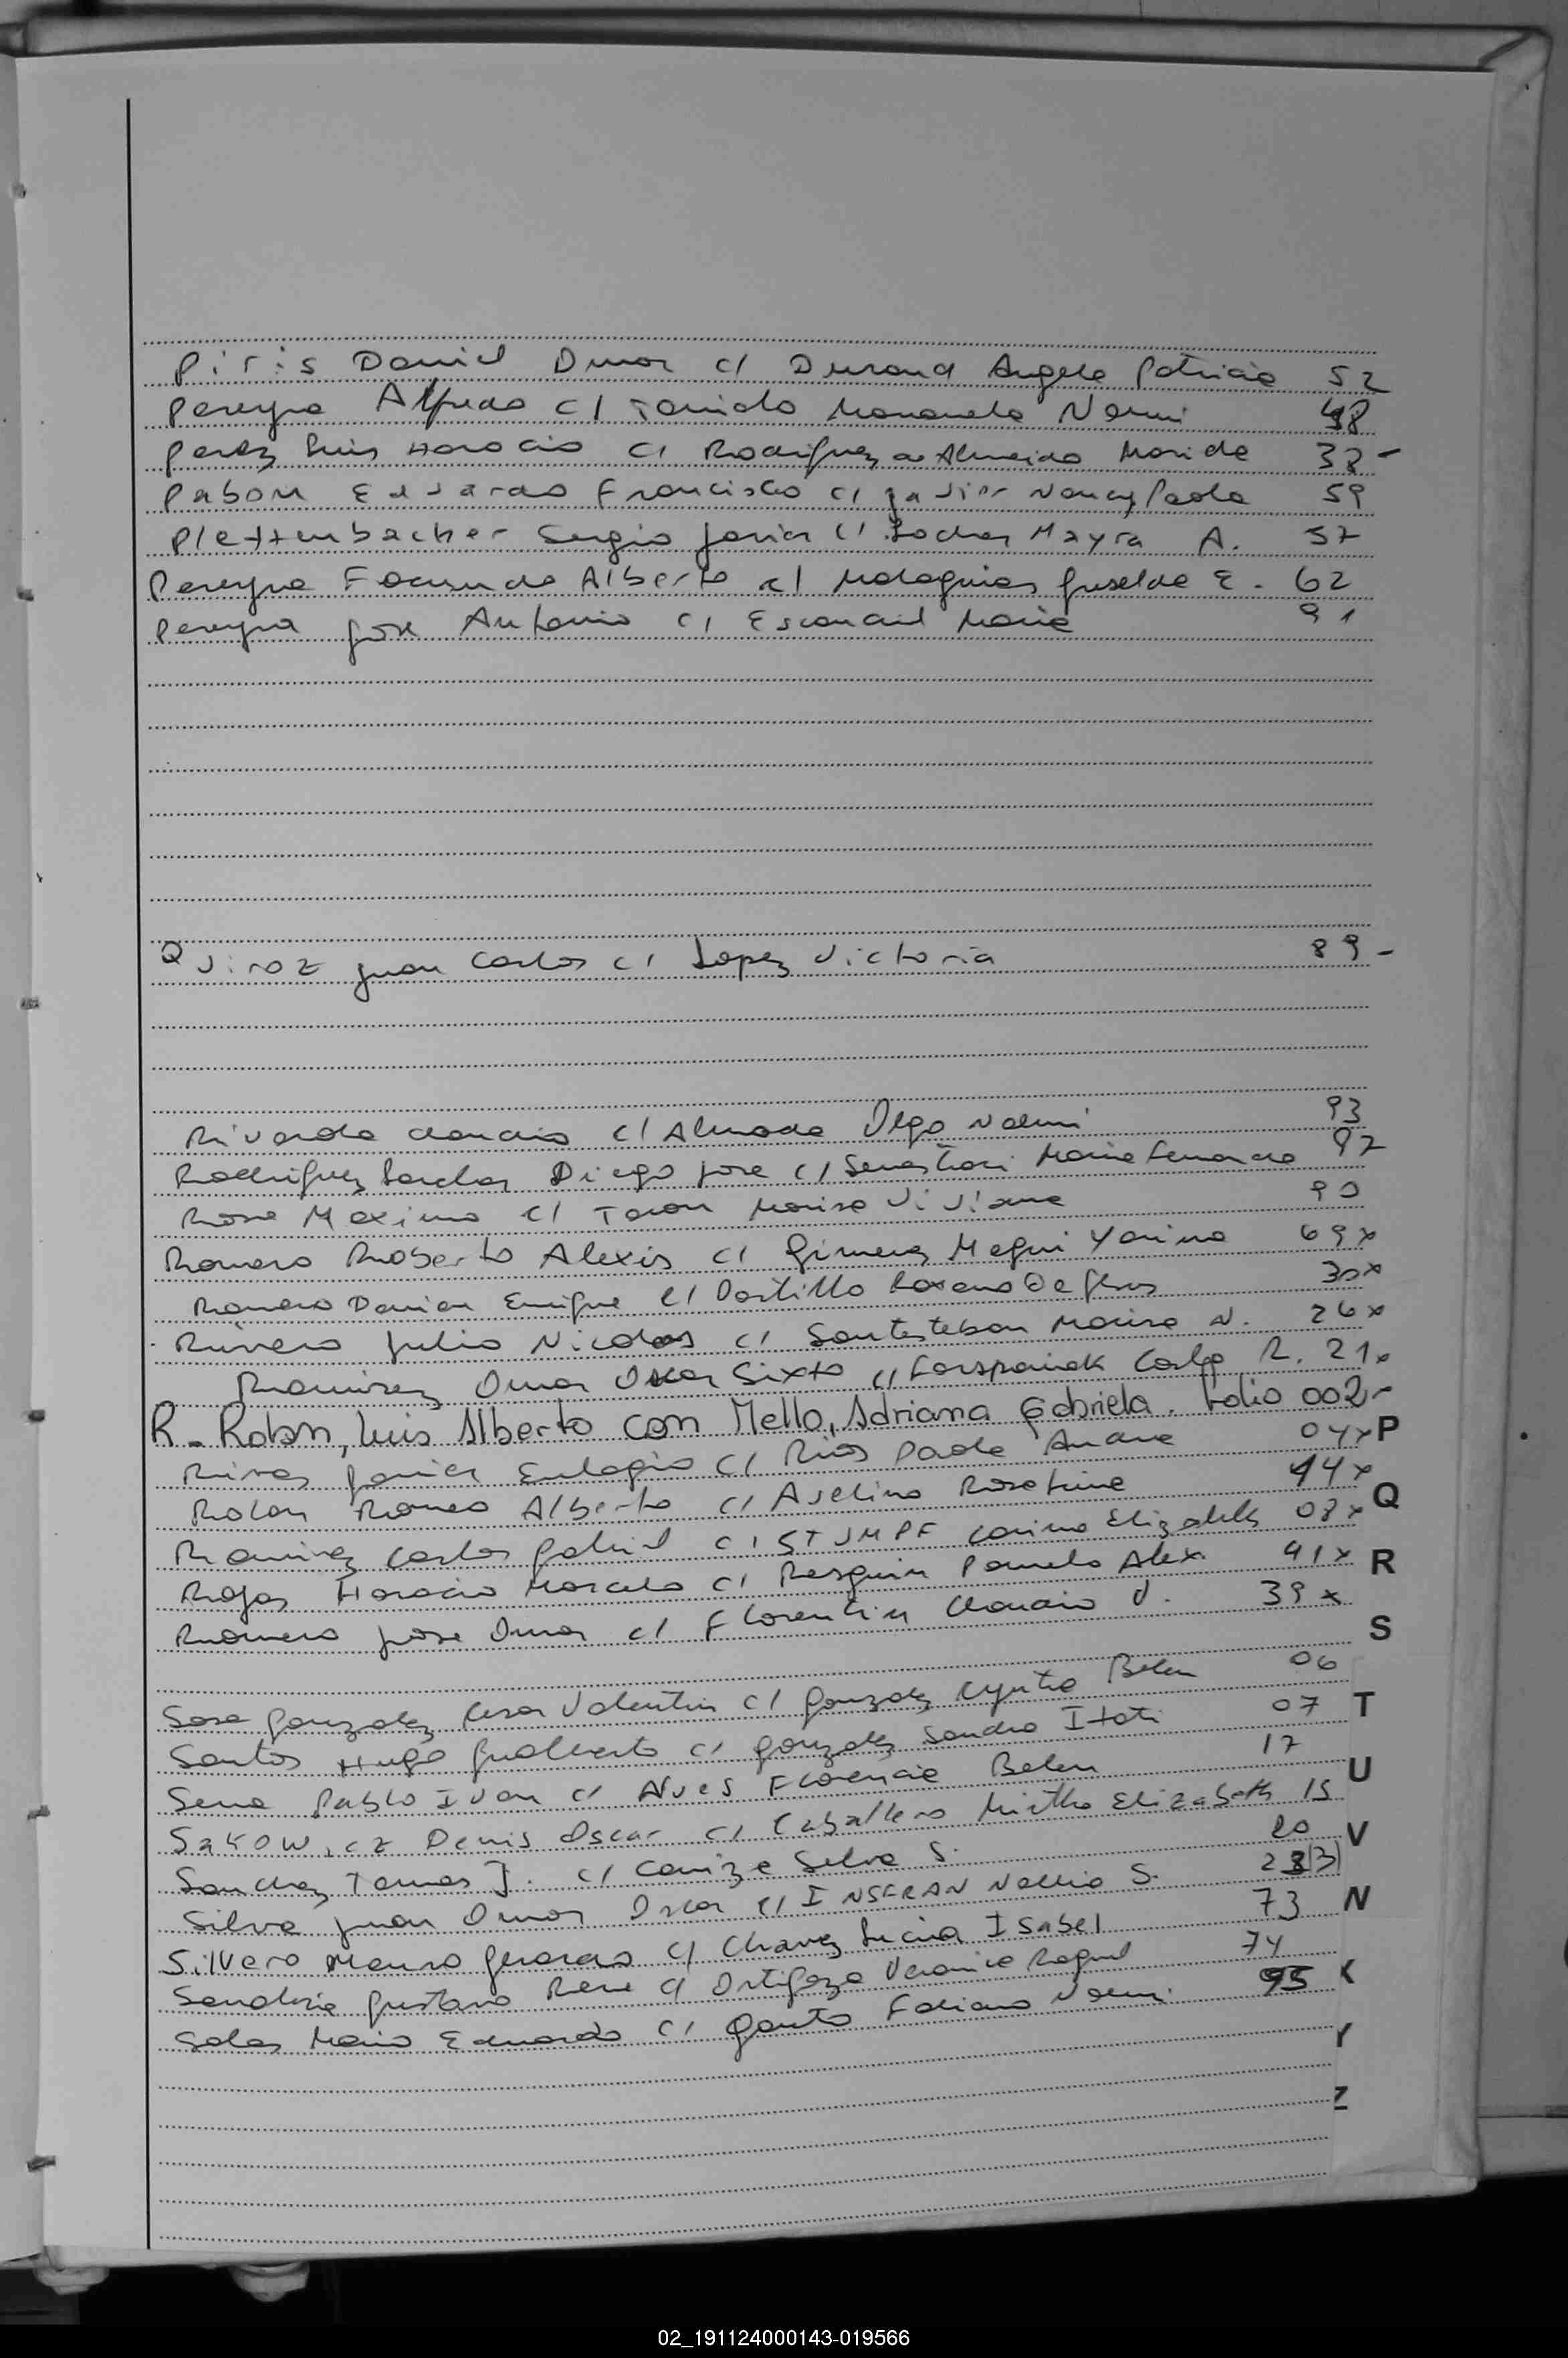 Piris Daniel Omar c/ Durand Angela Patricia 52
Pereyra Alfredo c/ Manuela Noemi 48
Perez Luis Horacio c/ Rodriguez de Almeida Mariela 38 -
Pabon Eduardo Francisco c/ Javier Nancy Paola 59
Plettenbacher Sergio Javier c/ Mayra A. 57
Pereyra Facundo Alberto c/ Malaquias Griselda E. 62
Pereyra Jose Antonio c/ Maria 91
Quiroz Juan Carlos c/ Lopez Victoria 89 -
Rivarola Claudio c/ Almada Olga Noemi 93
Rodriguez Diego Jose c/ Maria Fernanda 97
Rosa Maximo c/ Marisa Viviana 90
Romero Roberto Alexis c/ Gimenez Magui Yanina 69x
Romero Damian Enrique c/ Portillo Roxana De Jesus 30x
Rivero Julio Nicolas c/ Santesteban Marisa N. 26x
Ramirez Omar Oscar Sixto c/ Carla R. 21x
R. Rolon, Luis Alberto con Mello, Adriana Gabriela. Folio 002-
Rivas Javier Eulogio c/ Rios Paola 04x P
Rolon Romeo Alberto c/ Avelino Rosa 14x
Q
Ramirez Carlos Gabriel c/ STUMPF Carina Elizabeth 08x
Rojas Horacio Marcelo c/ Resquin Pamela Alex. 41x R
Romero Jose Omar c/ Florentin Claudia V. 39x
S
Sosa Gonzalez Cesar Valentin c/ Gonzalez Cyntia Belen 06
Santos Hugo Gualberto c/ Gonzalez Sandra Itati 07 T
Sena Pablo Ivan c/ Alves Florencia Belen 17
U
Sakowicz Denis Oscar c/ Caballero Mirtha Elizabeth 15
Sanchez Tomas J. c/ Silva S. 20 V
Silva Juan Omar Oscar c/ INSFRAN S. 23
Silvero Mauro Gerardo c/ Chavez Lucia Isabel 73 N
Gustavo Rene c/ Ortigoza Veronica Raquel 74
Salas Mario Eduardo c/ Fabiana Noemi 95
Z
02_191124000143-019566